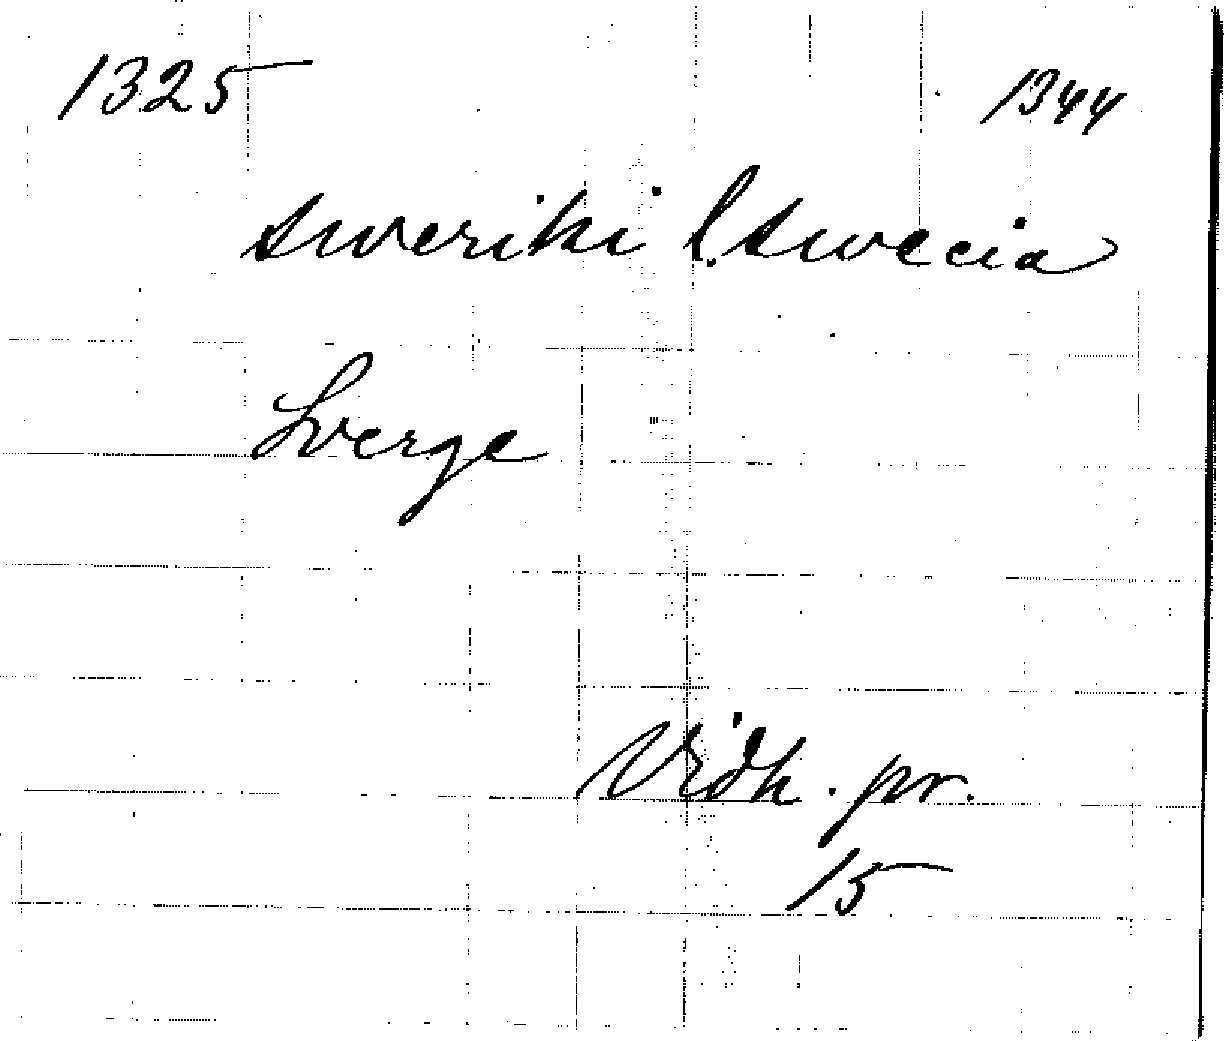 1325 1344
sweriki l. swecia
Sverge
Vidh. pr.
15